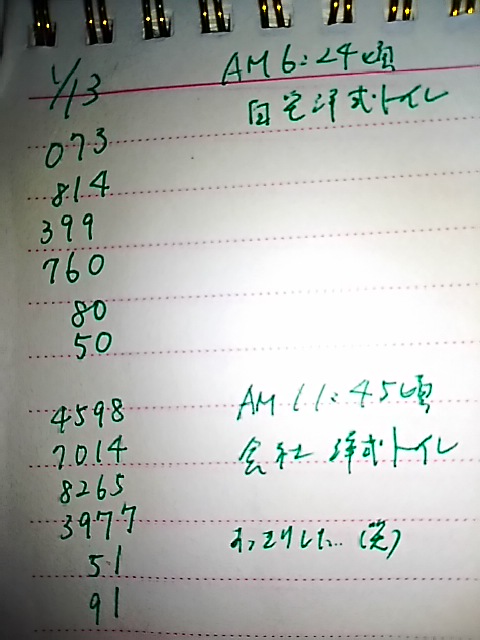 1/13 AM6:24頃
自宅洋式トイレ
073
814
399
760
80
50
4598 AM11:45頃
7014 会社 洋式トイレ
8265
3977 すっきりした…(笑)
51
91